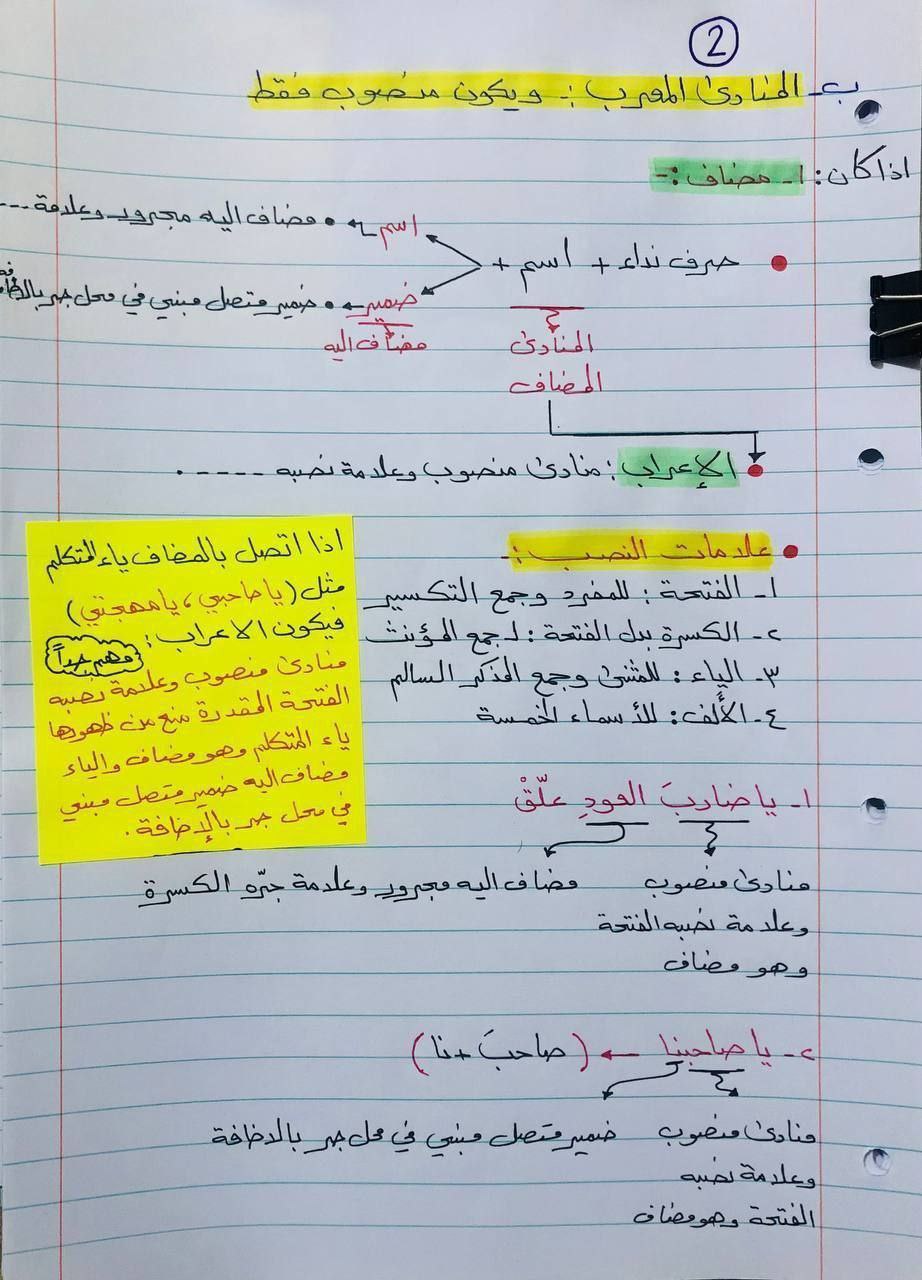 2
ب- المنادى المعرب :- ويكون منصوب فقط
اذا كان: ١- مضاف :-
اسم ← • مضاف اليه مجرور وعلامة ...
حرف نداء + اسم +
ضمير ← • ضمير متصل مبني في محل جر بالاضافة
مضاف اليه
المنادى
المضاف
الإعراب : منادى منصوب وعلامة نصبه ----- .
علامات النصب :-
١- الفتحة : للمفرد وجمع التكسير
٢- الكسرة بدل الفتحة : لجمع المؤنث
٣- الياء : للمثنى وجمع المذكر السالم
٤- الألف : للأسماء الخمسة
اذا اتصل بالمضاف ياء المتكلم
مثل (يا صاحبي ، يا مهجتي)
فيكون الاعراب :
مهم جداً
منادى منصوب وعلامة نصبه
الفتحة المقدرة منع من ظهورها
ياء المتكلم وهو مضاف والياء
مضاف اليه ضمير متصل مبني
في محل جر بالإضافة .
١- يا ضاربَ العودِ علّقْ
منادى منصوب
وعلامة نصبه الفتحة
وهو مضاف
مضاف اليه مجرور وعلامة جرّه الكسرة
٢- يا صاحبنا ← (صاحبَ + نا)
منادى منصوب
وعلامة نصبه
الفتحة وهو مضاف
ضمير متصل مبني في محل جر بالاضافة